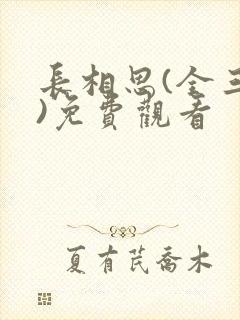 長相思(全三
)免費觀看
夏有芪喬木